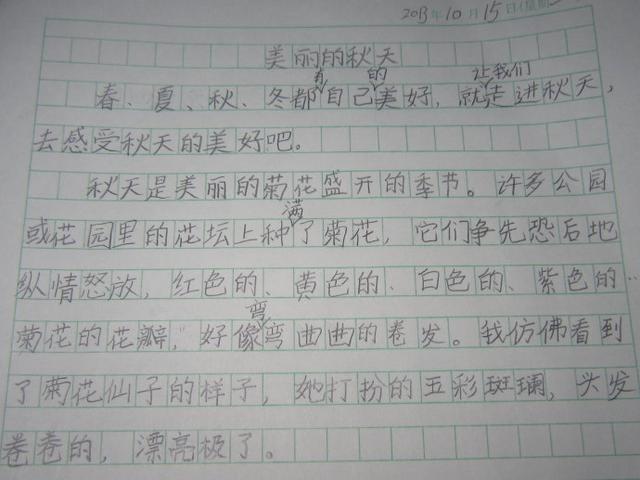 2013年10月15日(星期
美丽的秋天
春、夏、秋、冬都有自己的美好,就让我们走进秋天,
去感受秋天的美好吧。
秋天是美丽的菊花盛开的季节。许多公园
或花园里的花坛上种满了菊花,它们争先恐后地
纵情怒放,红色的、黄色的、白色的、紫色的……
菊花的花瓣,好像弯弯曲曲的卷发。我仿佛看到
了菊花仙子的样子,她打扮的五彩斑斓,头发
卷卷的,漂亮极了。